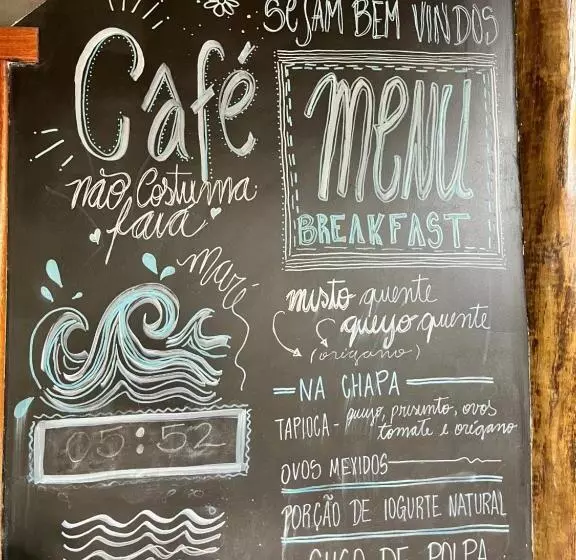 Café
não costuma
faiá
maré
05:52
SEJAM BEM VINDOS
menu
BREAKFAST
misto quente
queijo quente
(orégano)
NA CHAPA
TAPIOCA - queijo, presunto, ovos
tomate e orégano
OVOS MEXIDOS
PORÇÃO DE IOGURTE NATURAL
SUCO DE POLPA